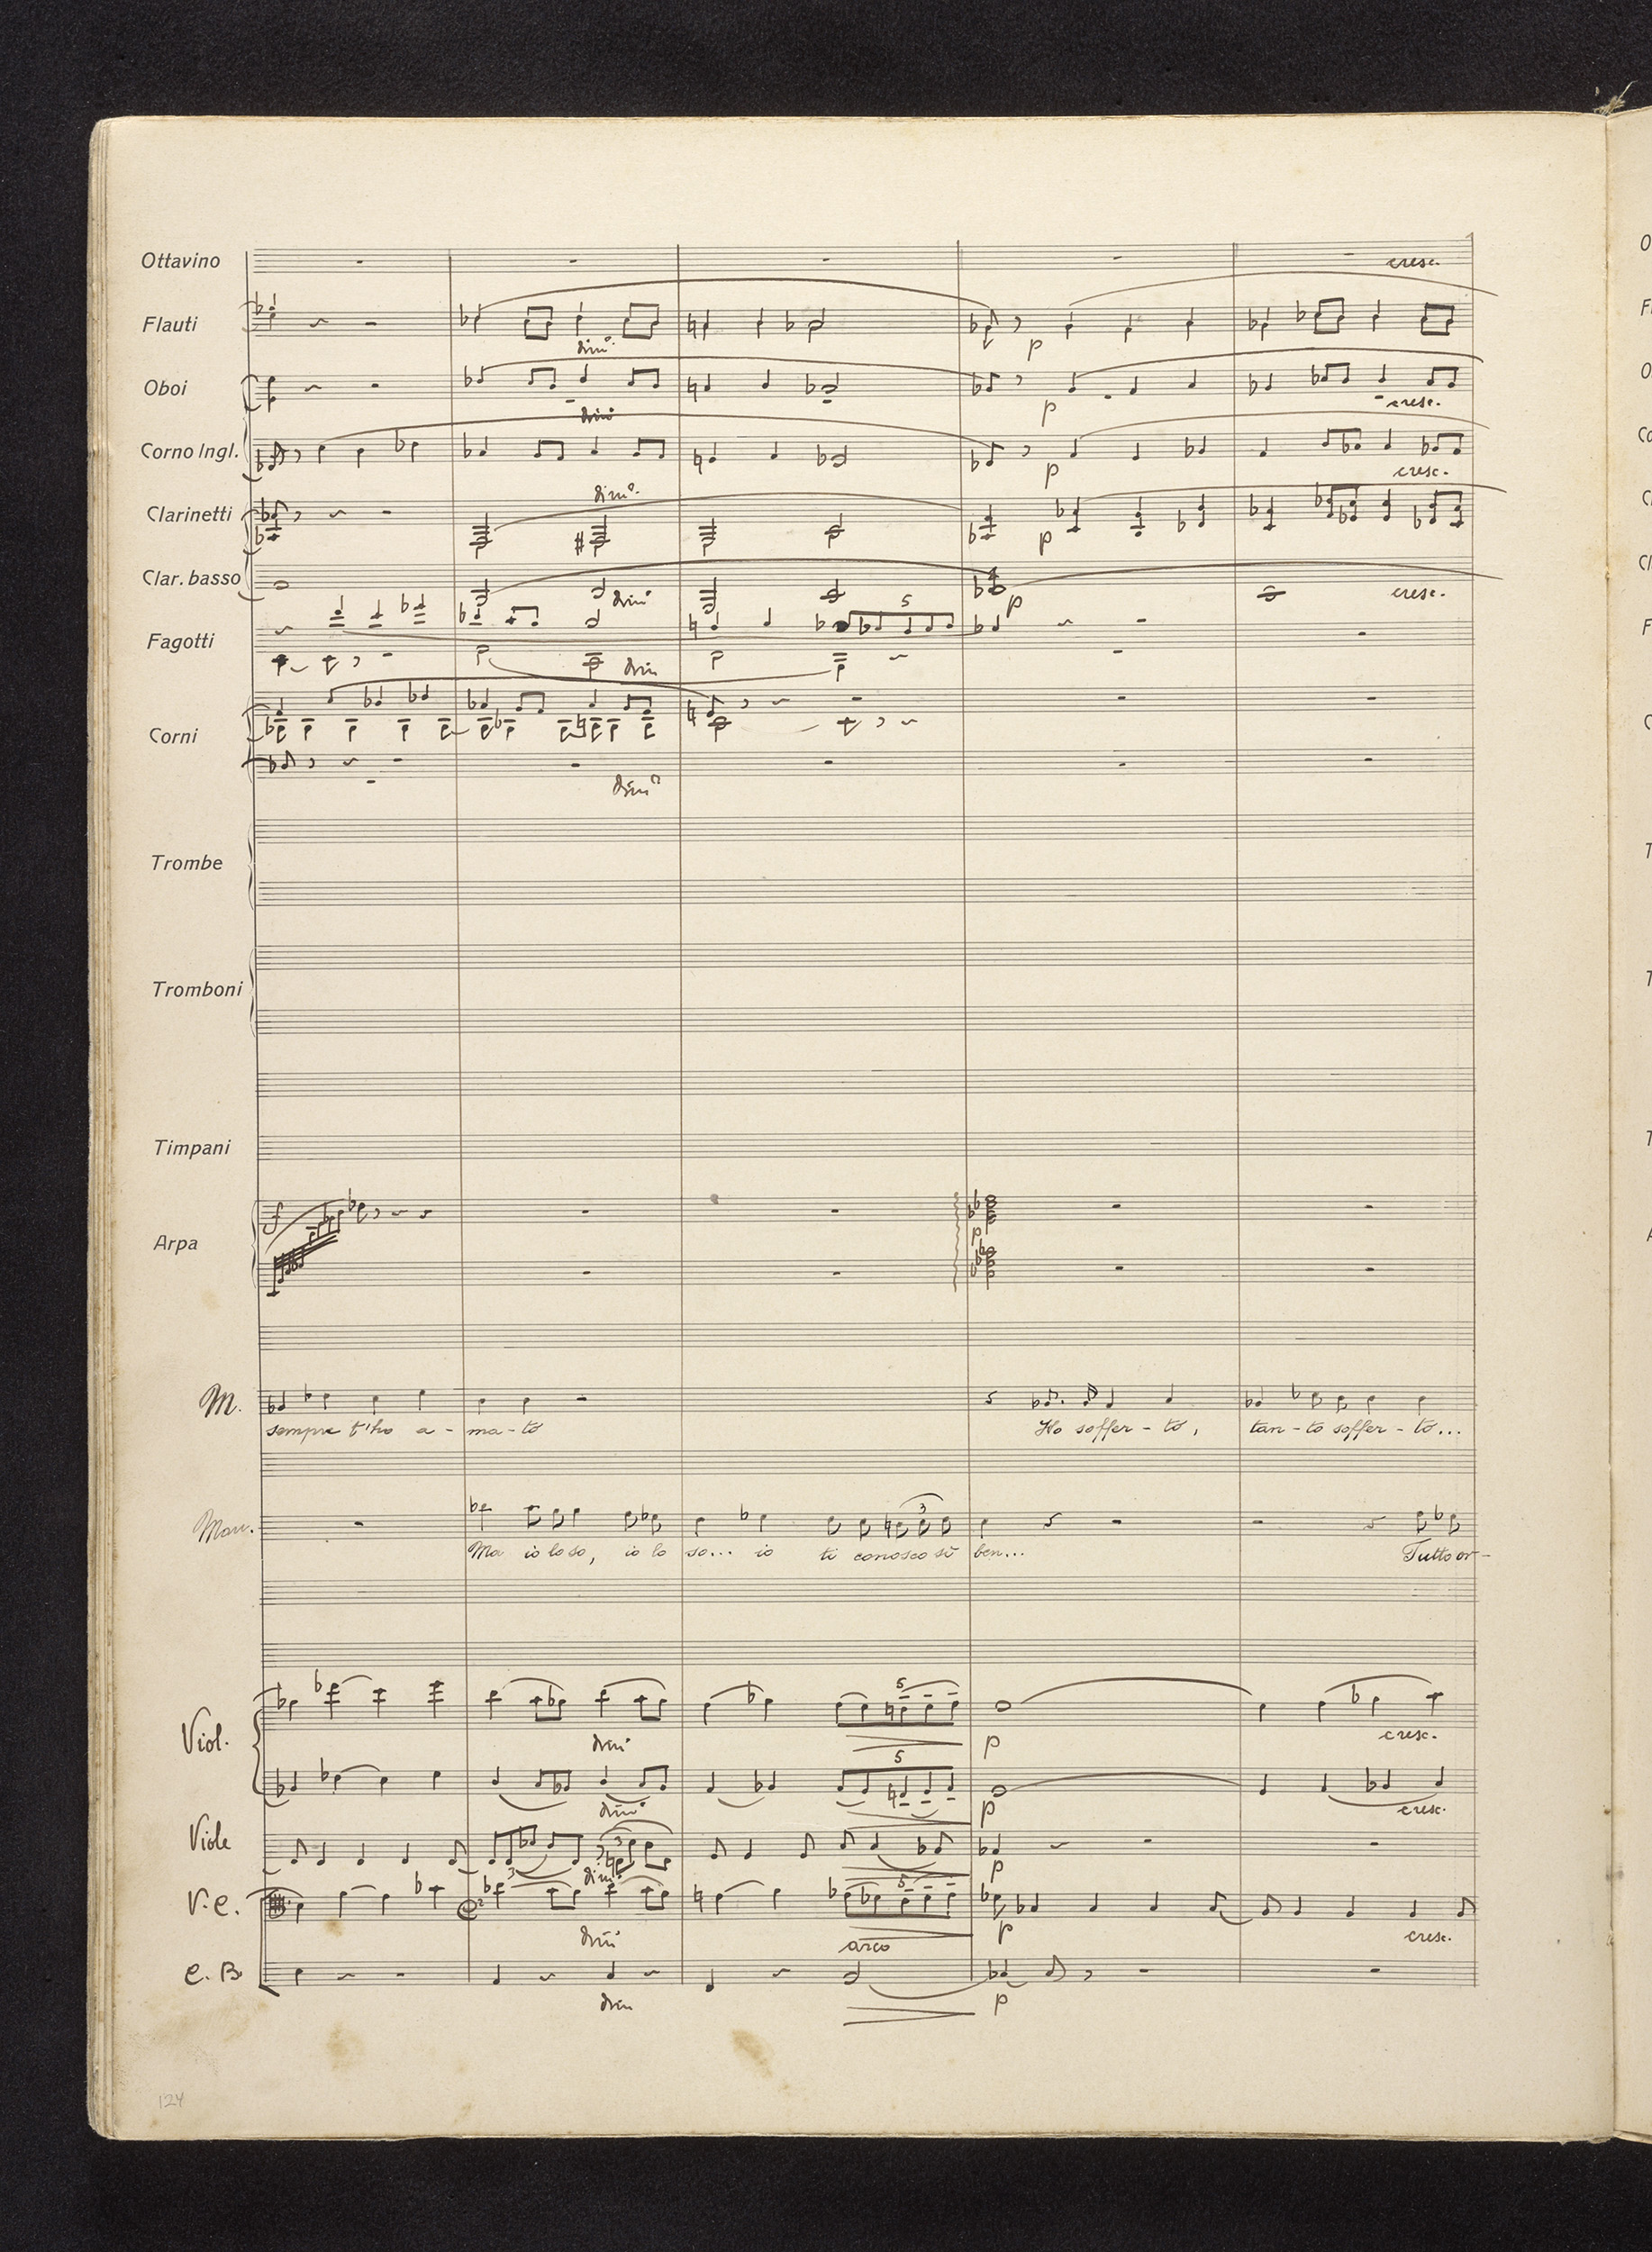 Ottavino
cresc.
Flauti
dim.
p
Oboi
dim
p
cresc.
Corno Ingl.
p
cresc.
Clarinetti
dim.
p
Clar. basso
dim
p
cresc.
5
Fagotti
dim
Corni
dim
Trombe
Tromboni
Timpani
f
p
Arpa
M.
sempre t'ho a - ma - to
Ho soffer - to,
tan - to soffer - to...
Man.
3
Ma io lo so, io lo so... io ti conosco sì ben...
Tutto or -
Viol.
5
dim
p
cresc.
5
dim.
p
cresc.
Viole
3
3
dim.
p
V. C.
5
dim
p
cresc.
arco
C. B.
dim
p
124